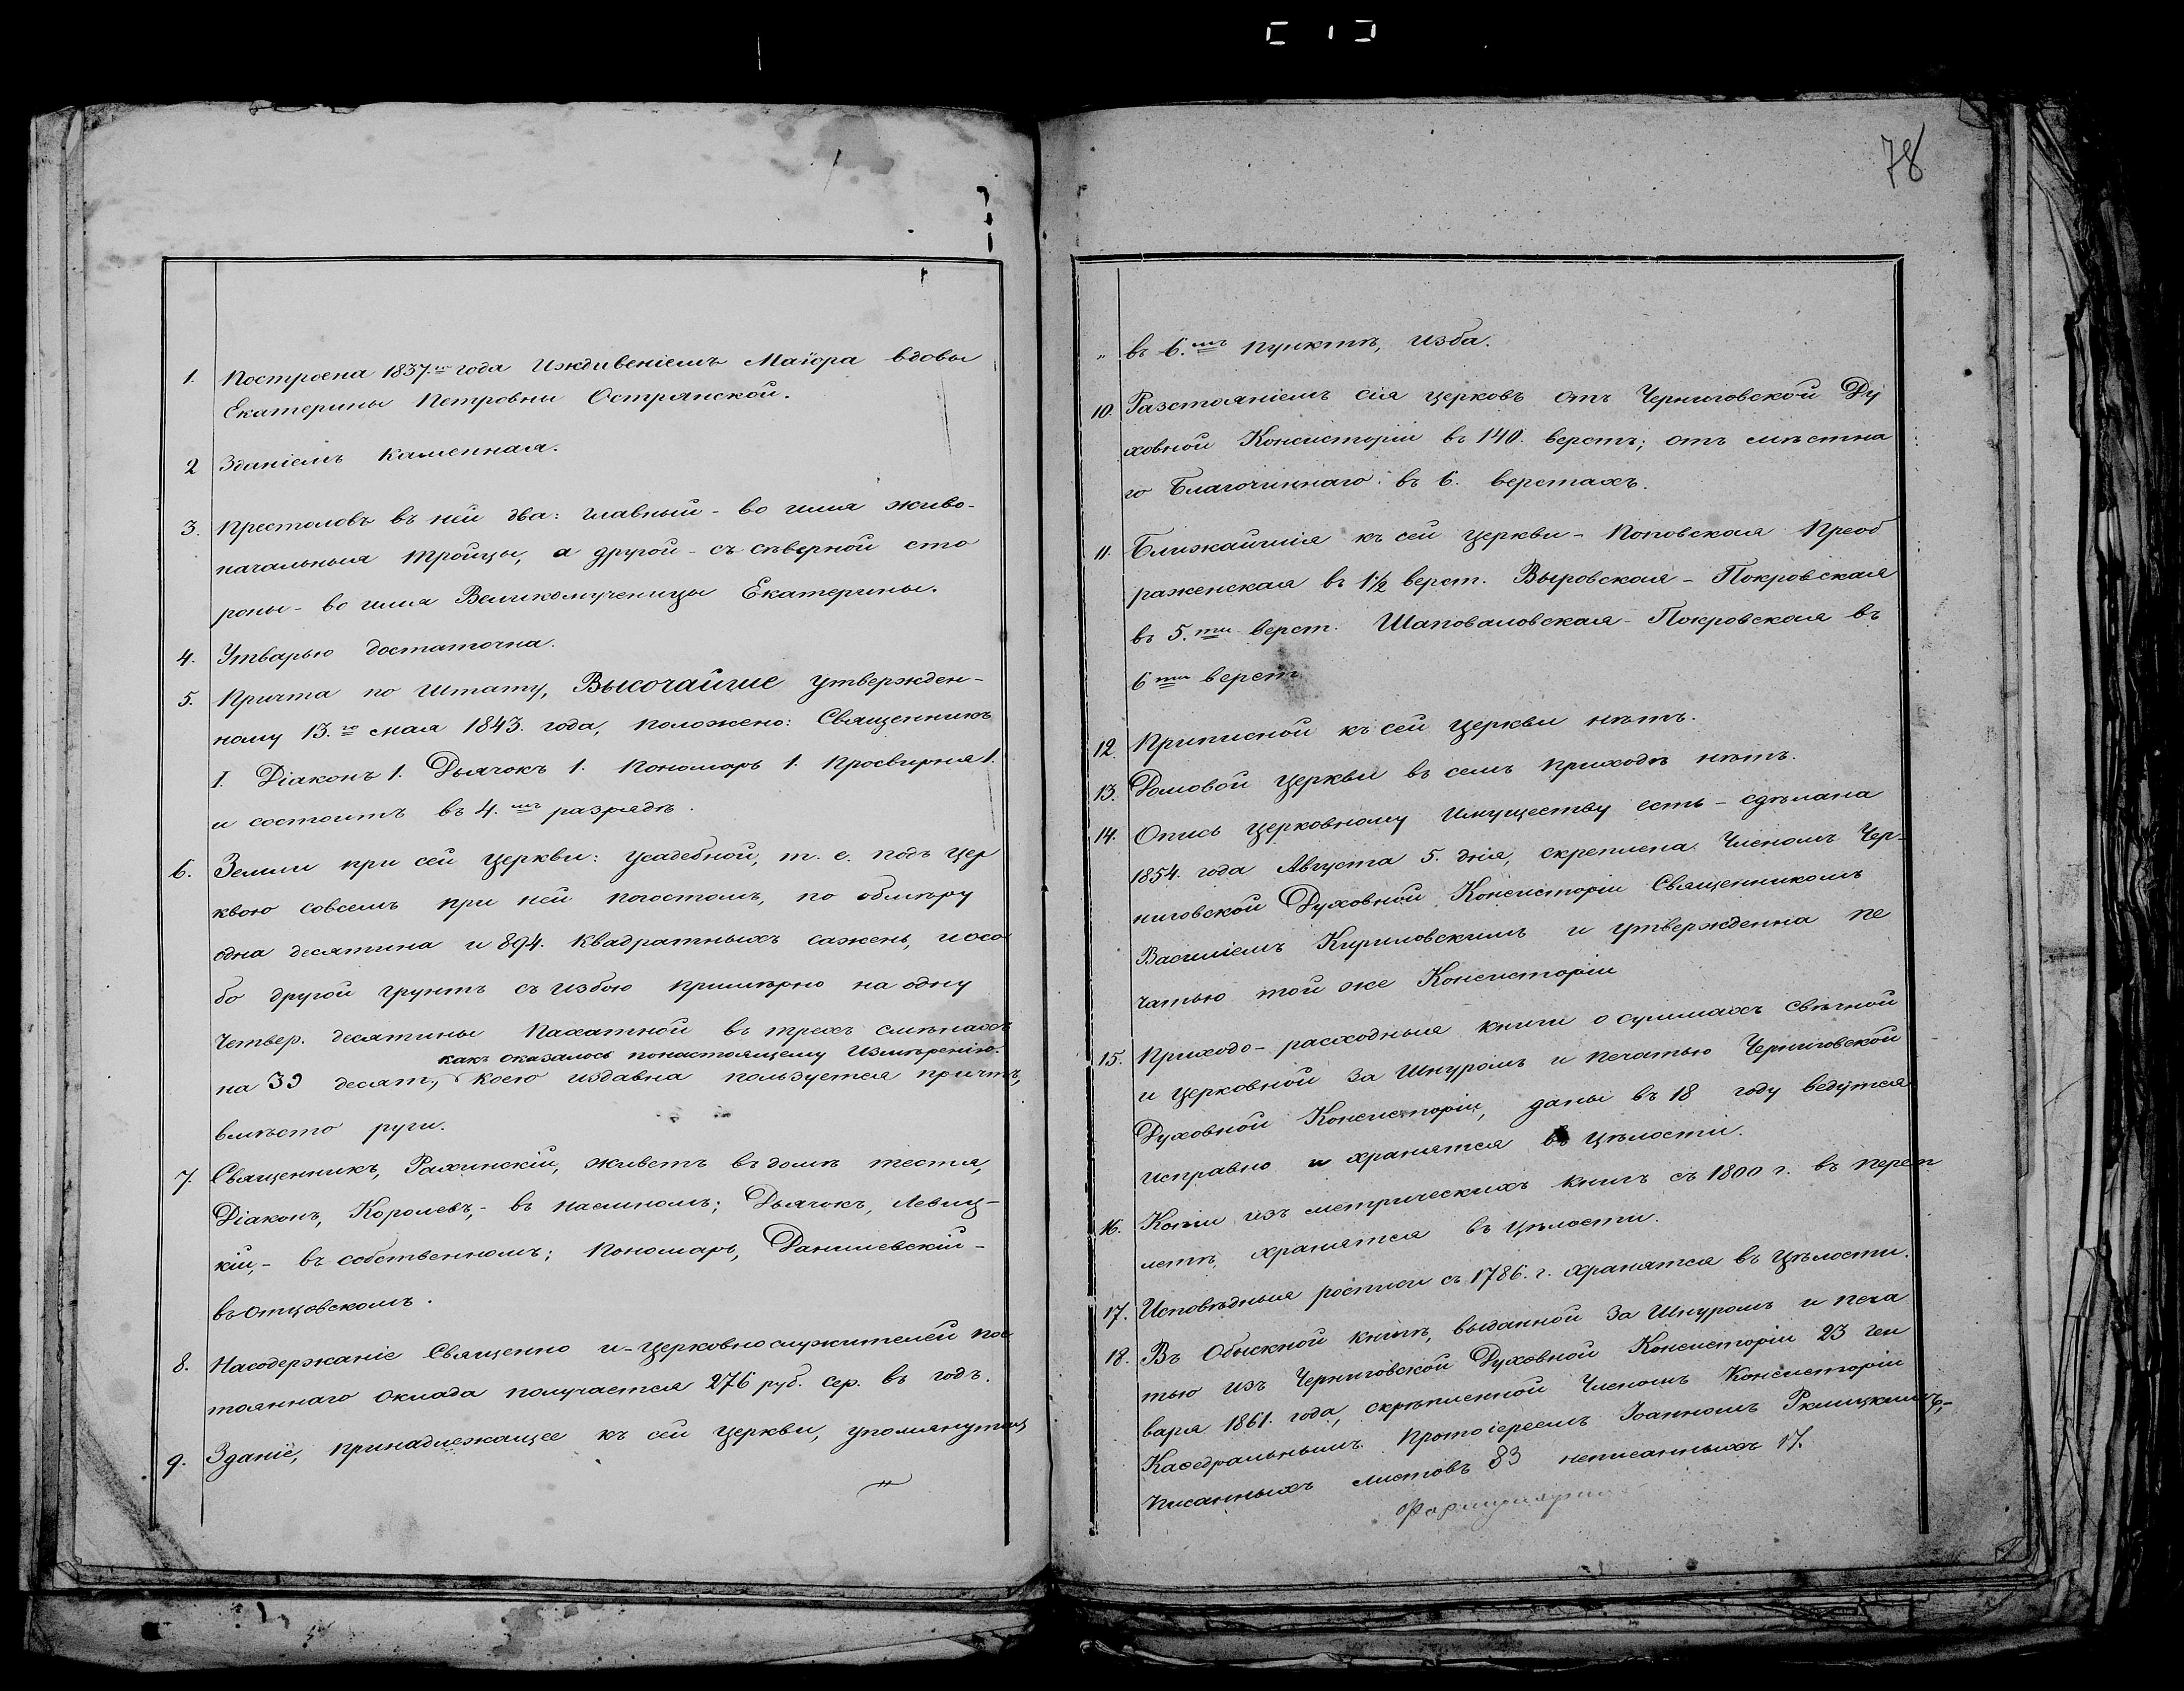 78
1. Построена 1837.го года Иждивеніемъ Маіора вдовы
Екатерины Петровны Острянской.
2 Зданіемъ каменная.
3. Престоловъ въ ней два: главный - во имя живо-
начальныя Тройцы, а другой - съ сѣверной сто
роны - во имя Великомученицы Екатерины.
4. Утварью достаточна.
5. Причта по Штату, Высочайше утвержден-
ному 13.го мая 1843. года, положено: Священникъ
1. Діаконъ 1. Дьячокъ 1. Пономарь 1. Просвирня 1.
и состоитъ въ 4.мъ разрядѣ.
6. Земли при сей церкви: усадебной, т. е. подъ цер
квою совсемъ при ней погостомъ, по обмѣру
одна десятина и 894. квадратныхъ сажень, и осо
бо другой грунтъ съ избою примѣрно на одну
четвер. десятины пахатной въ трехъ смѣнахъ
какъ оказалось понастоящему Измѣренію.
на 39 десят., коею издавна пользуется причтъ,
вмѣсто руги.
7. Священникъ, Рахинскій, живетъ въ домѣ тестя,
Діаконъ, Королевъ, - въ наемномъ; Дьячокъ, Левиц-
кій, - въ собственномъ; Пономарь, Данилевскій -
въ отцовскомъ.
8. На содержаніе Священно и - церковнослужителей пос
тояннаго оклада получается 276 руб. сер. въ годъ.
9. Зданіе, принадлежащее къ сей церкви, упомянутая
„ въ 6.мъ пунктѣ, изба.
10. Разстояніемъ сія церковъ отъ Черниговской Ду
ховной Консисторіи въ 140. верстъ; отъ мѣстна
го Благочиннаго въ 6. верстахъ.
11. Ближайшія къ сей церкви - Поповская Преоб
раженская въ 1½ верст. Выровская - Покровская
въ 5.ти верст. Шаповаловская - Покровская въ
6ти верст.
12. Приписной къ сей церкви нѣтъ.
13. Домовой церкви въ семъ приходѣ нѣтъ.
14. Опись церковному имуществу есть - сдѣлана
1854. года Августа 5. дня, скреплена Членомъ Чер-
ниговской Духовной Консисторіи Священникомъ
Василіемъ Кириловскимъ и утвержденна пе
чатью той же Консисторіи
15. Приходо - расходныя книги о суммахъ свѣчной
и церковной за Шнуромъ и печатью Черниговской
Духовной Консисторіи, даны въ 18 году ведутся
исправно и хранятся въ цѣлости.
16. Копіи изъ метрическихъ книгъ съ 1800 г. въ переп
летѣ, хранятся въ цѣлости.
17. Исповѣдныя росписи съ 1786. г. хранятся въ цѣлости.
18. Въ Обыскной книгѣ, выданной за Шнуромъ и печа
тью изъ Черниговской Духовной Консисторіи 23 ген
варя 1861. года, скрѣпленной Членомъ Консисторіи
Каѳедральнымъ Протоіереемъ Іоанномъ Рклицкимъ, -
писанныхъ листовъ 83 неписанныхъ 17.